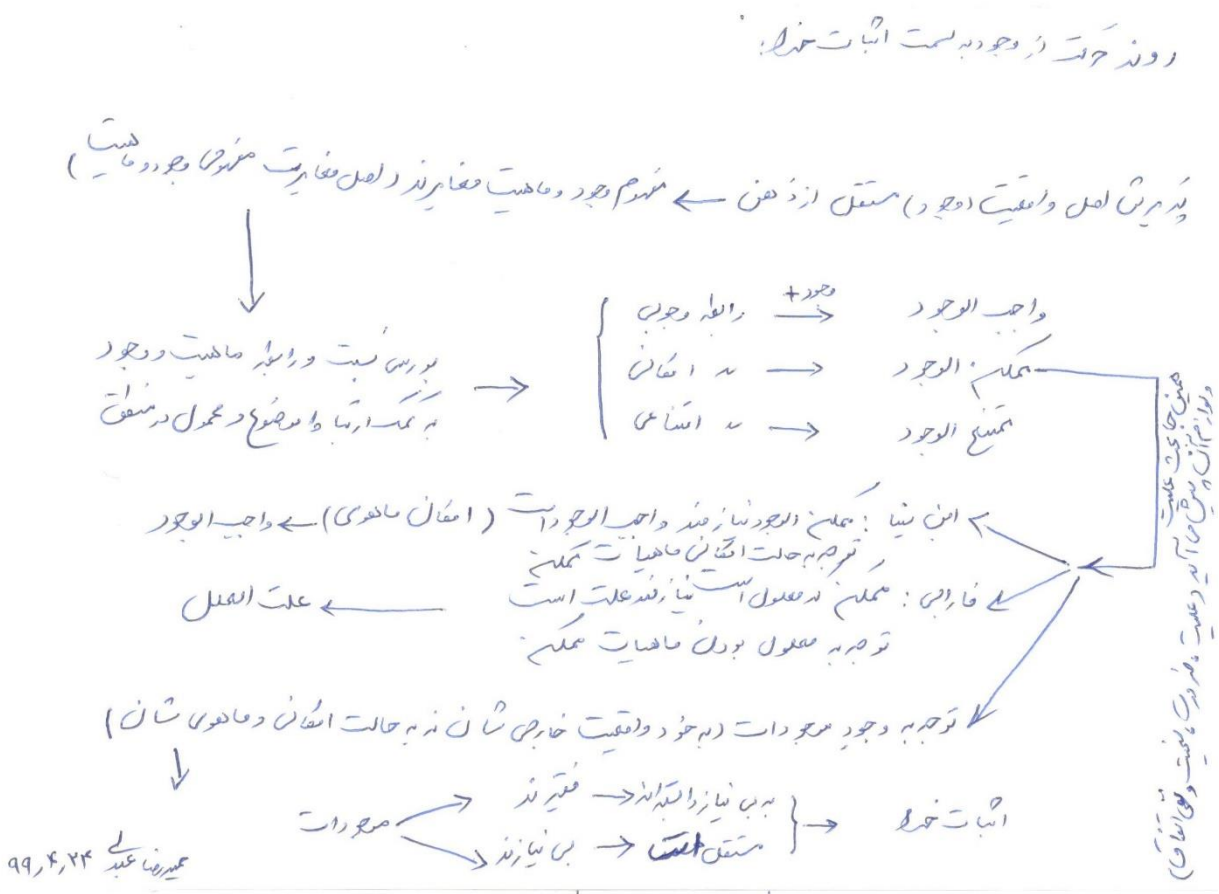 روند حرکت از وجود به سمت اثبات خدا:
پذیرش اصل واقعیت (وجود) مستقل از ذهن ← مفهوم وجود و ماهیت مغایرند (اصل مغایرت مفهومی وجود و ماهیت)
بررسی نسبت و رابطه ماهیت و وجود
به کمک ارتباط موضوع و محمول در منطق
رابطه وجوبی + وجود → واجب الوجود
〃 امکانی → ممکن الوجود
〃 امتناعی → ممتنع الوجود
همین جا بحث علیت
و لوازم آن نیز پیش می آید (علیت، ضرورت، سنخیت و نفی اتفاق)
ابن سینا: ممکن الوجود نیازمند واجب الوجود است (امکان ماهوی) ← واجب الوجود
توجه به حالت امکانی ماهیات ممکن
فارابی: ممکن که معلول است نیازمند علت است ← علت العلل
توجه به معلول بودن ماهیات ممکن
توجه به وجودِ موجودات (به خود واقعیت خارجی شان نه به حالت امکانی و ماهوی شان)
موجودات
فقیرند ← به بی نیاز وابسته اند
بی نیازند ← مستقل است
→ اثبات خدا
حمیدرضا عبدلی ۹۹,۴,۲۴